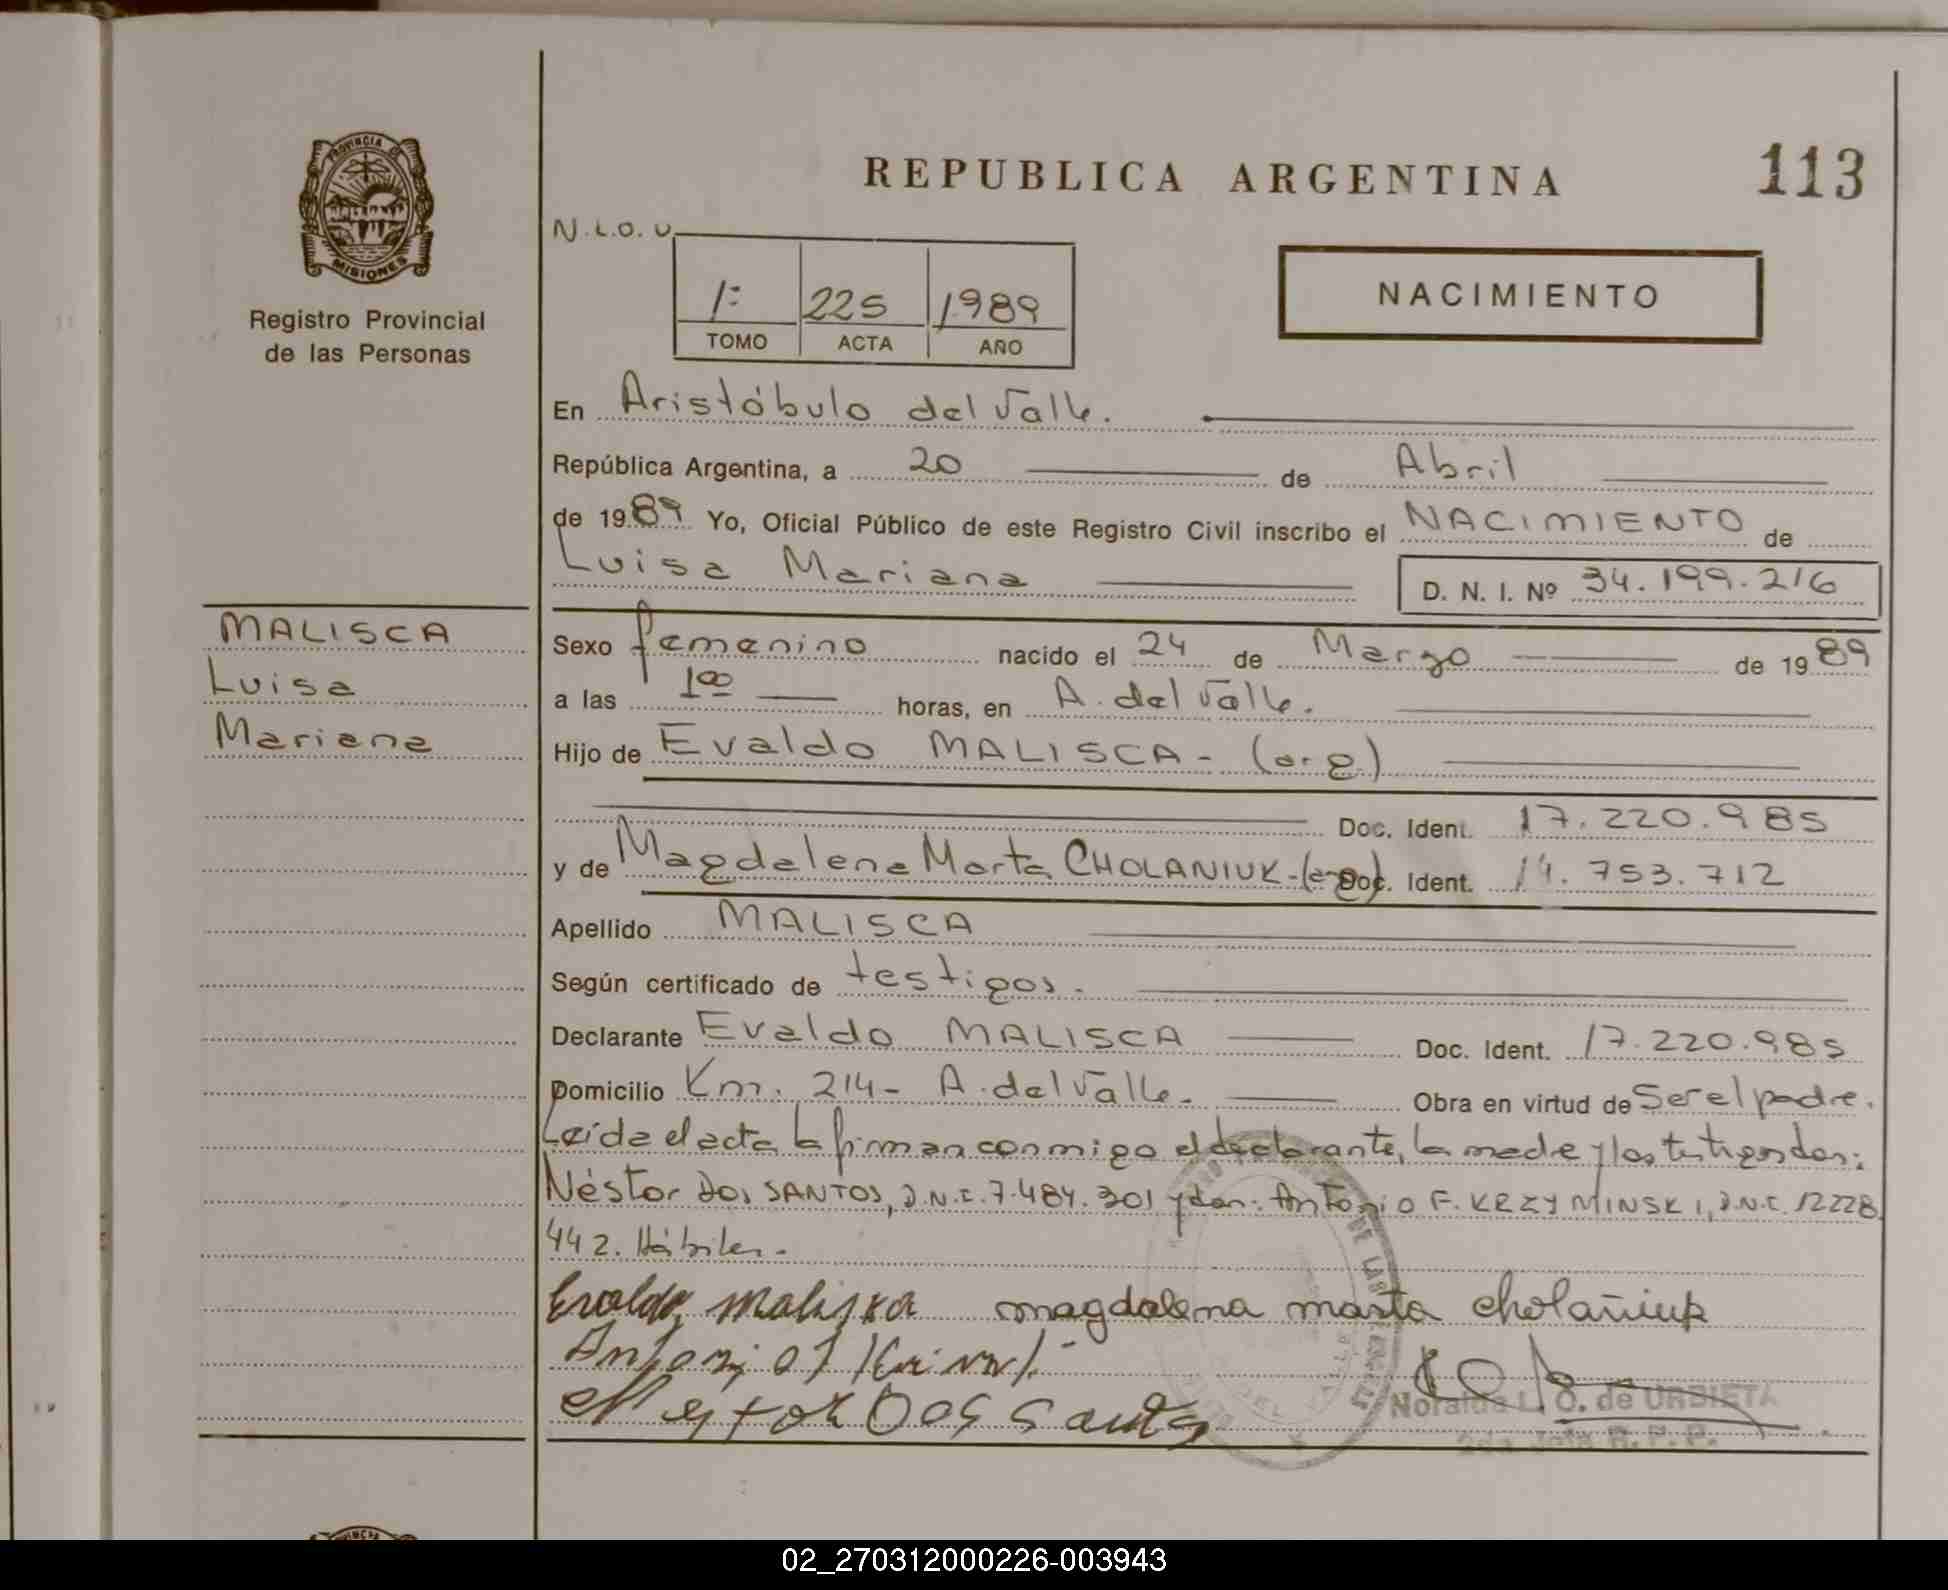 PROVINCIA DE
MISIONES
Registro Provincial
de las Personas
MALISCA
Luisa
Mariana
REPUBLICA ARGENTINA
113
N.L.O.U
1º 225 1989
TOMO ACTA AÑO
NACIMIENTO
En Aristóbulo del Valle.
República Argentina, a 20 de Abril
de 1989 Yo, Oficial Público de este Registro Civil inscribo el NACIMIENTO de
Luisa Mariana D. N. I. Nº 34.199.216
Sexo femenino nacido el 24 de Marzo de 1989
a las 1 00 horas, en A. del Valle.
Hijo de Evaldo MALISCA - (arg)
Doc. Ident. 17.220.985
y de Magdalena Marta CHOLANIUK-(arg) Doc. Ident. 14.753.712
Apellido MALISCA
Según certificado de testigos.
Declarante Evaldo MALISCA Doc. Ident. 17.220.985
Domicilio Km. 214- A. del Valle. Obra en virtud de Ser el padre.
Leída el acta la firman conmigo el declarante, la madre y los testigos don:
Néstor DOS SANTOS, D.N.I. 7.484.301 y don: Antonio F. KRZYMINSKI, D.N.I. 12228
442. Hábiles.
Evaldo Malisca magdalena marta cholañiuk
Nestor Dos Santos
Noralda L. O. de URBIETA
2da Jefa R. P. P.
02_270312000226-003943